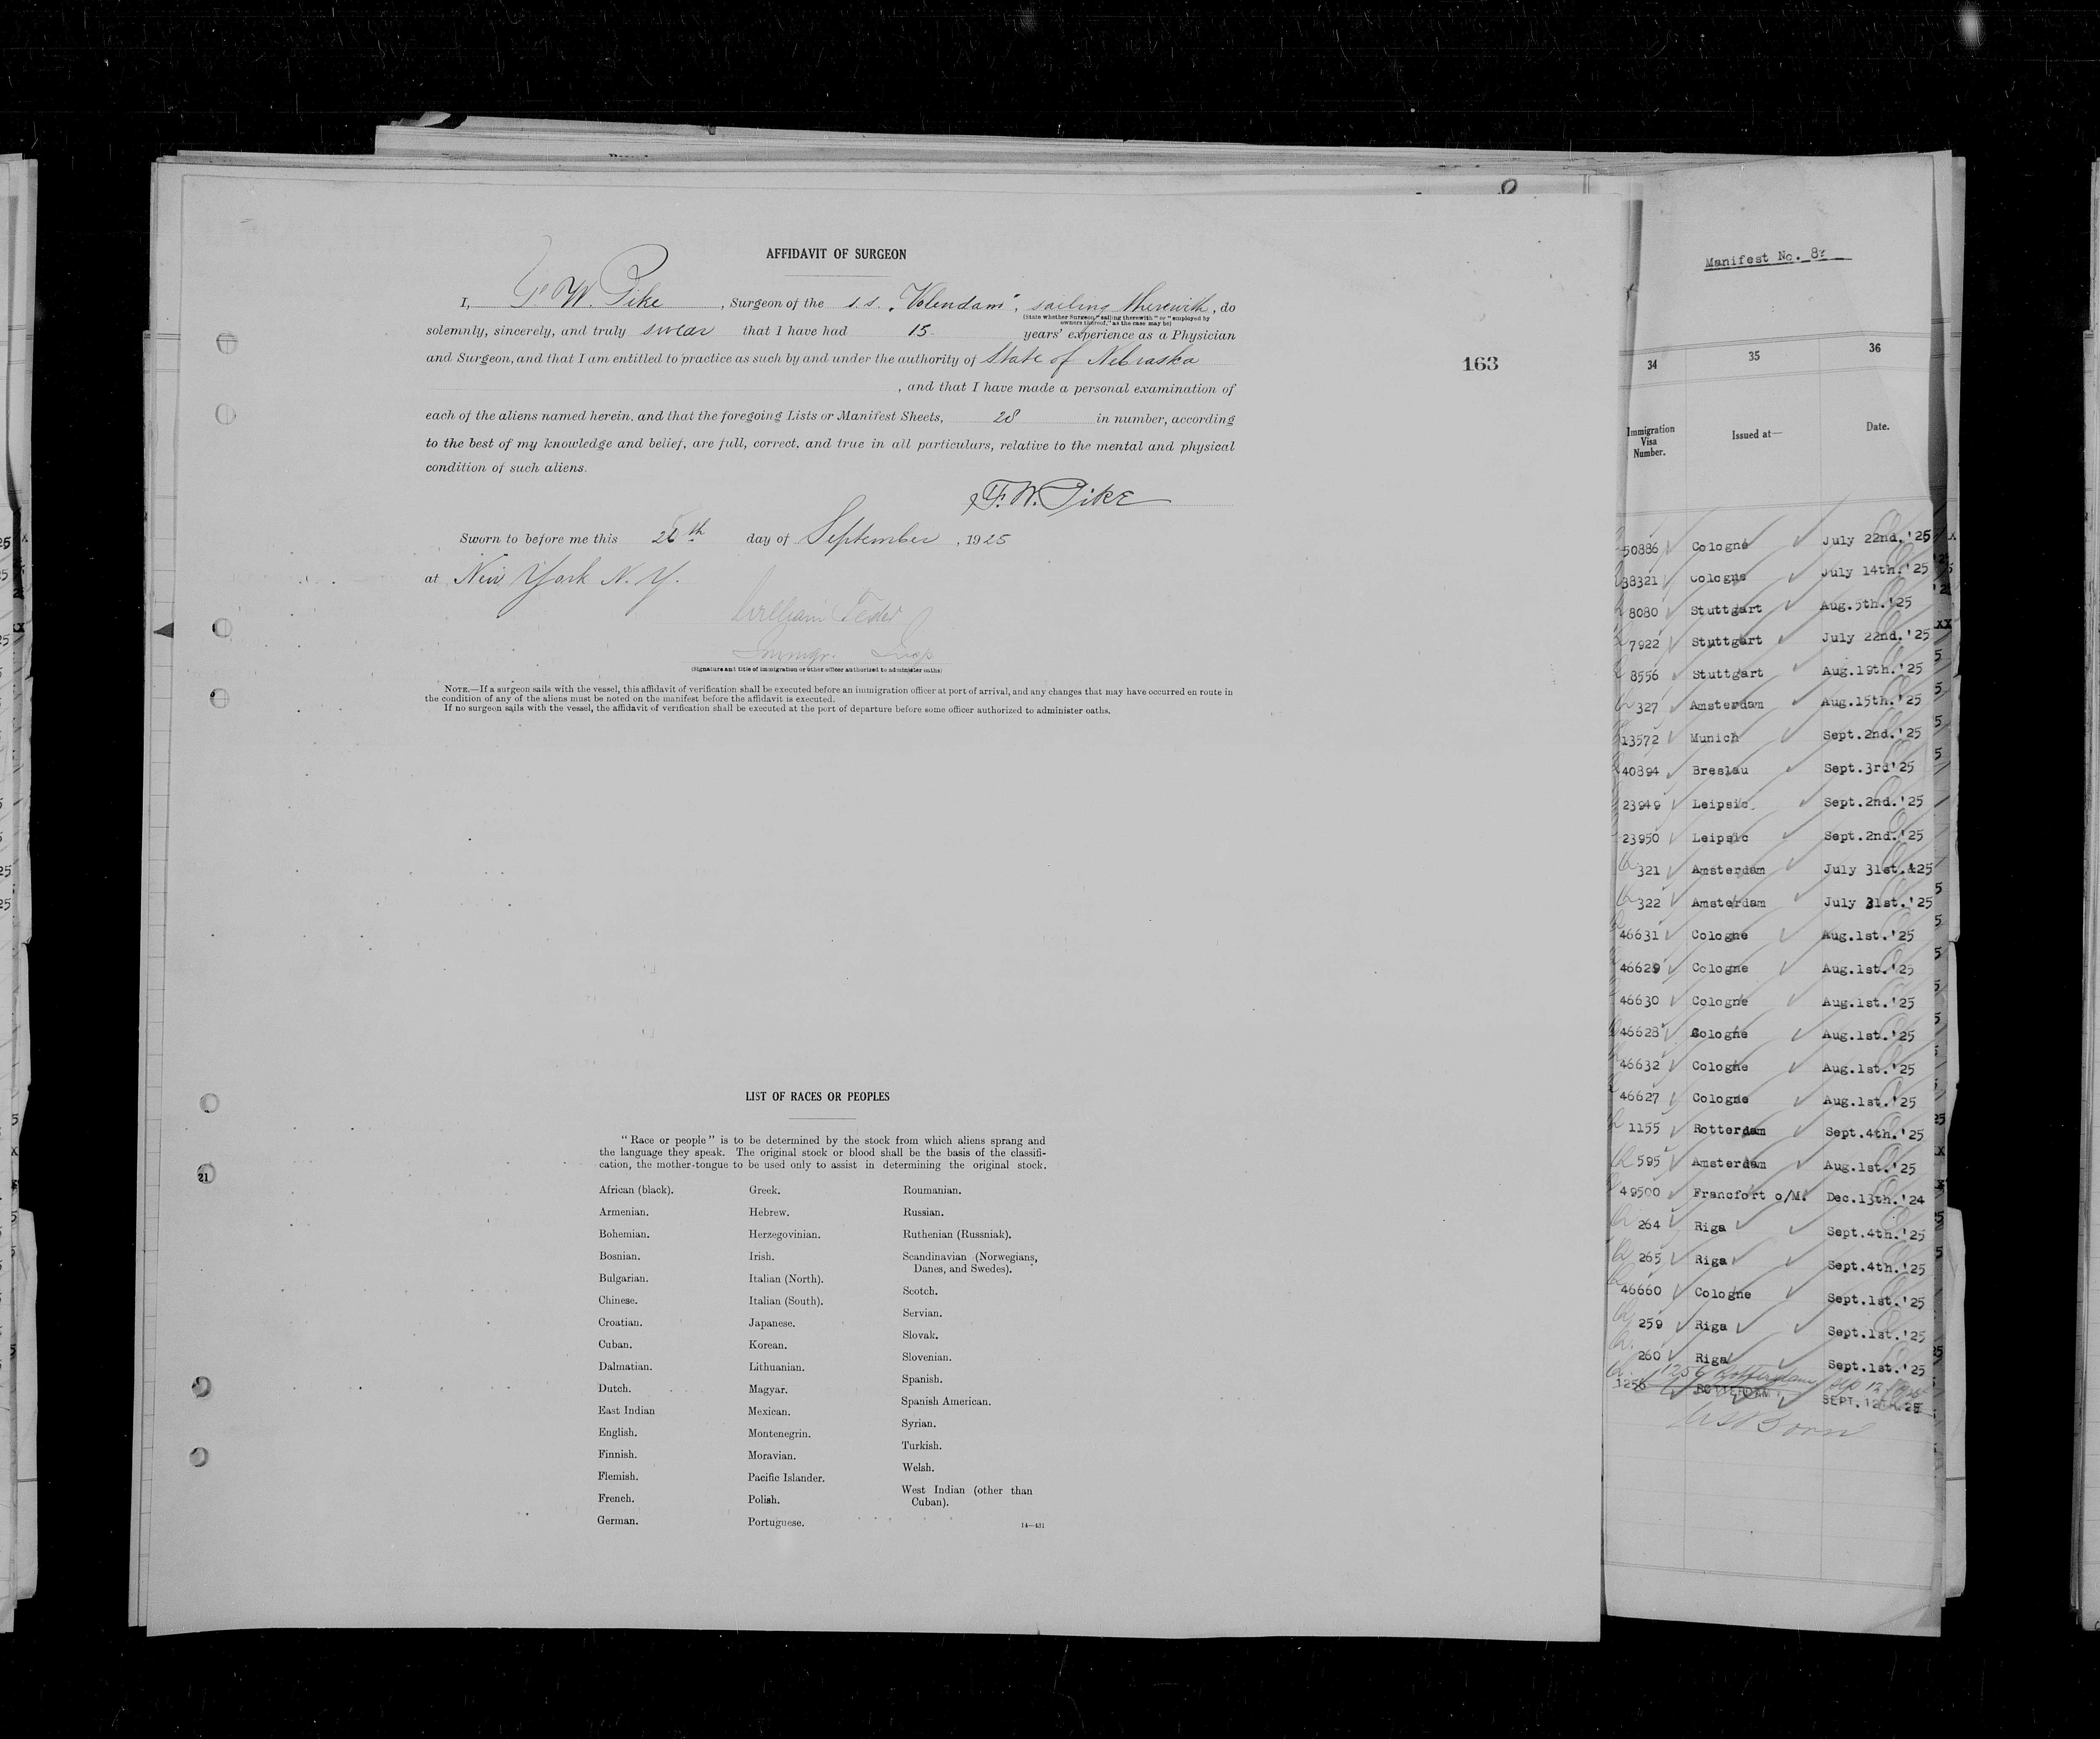 AFFIDAVIT OF SURGEON
I, F. W. Pike, Surgeon of the s.s. "Volendam", sailing therewith, do
(State whether Surgeon "sailing therewith" or "employed by
owners thereof," as the case may be)
solemnly, sincerely, and truly swear that I have had 15 years' experience as a Physician
and Surgeon, and that I am entitled to practice as such by and under the authority of State of Nebraska
, and that I have made a personal examination of
each of the aliens named herein, and that the foregoing Lists or Manifest Sheets, 28 in number, according
to the best of my knowledge and belief, are full, correct, and true in all particulars, relative to the mental and physical
condition of such aliens.
F. W. Pike
Sworn to before me this day of September, 1925
at New York N. Y.
William
Immgr. Insp
(Signature and title of immigration or other officer authorized to administer oaths)
NOTE.—If a surgeon sails with the vessel, this affidavit of verification shall be executed before an immigration officer at port of arrival, and any changes that may have occurred en route in
the condition of any of the aliens must be noted on the manifest before the affidavit is executed.
If no surgeon sails with the vessel, the affidavit of verification shall be executed at the port of departure before some officer authorized to administer oaths.
163
21
LIST OF RACES OR PEOPLES
"Race or people" is to be determined by the stock from which aliens sprang and
the language they speak. The original stock or blood shall be the basis of the classifi-
cation, the mother-tongue to be used only to assist in determining the original stock.
African (black).
Armenian.
Bohemian.
Bosnian.
Bulgarian.
Chinese.
Croatian.
Cuban.
Dalmatian.
Dutch.
East Indian
English.
Finnish.
Flemish.
French.
German.
Greek.
Hebrew.
Herzegovinian.
Irish.
Italian (North).
Italian (South).
Japanese.
Korean.
Lithuanian.
Magyar.
Mexican.
Montenegrin.
Moravian.
Pacific Islander.
Polish.
Portuguese.
Roumanian.
Russian.
Ruthenian (Russniak).
Scandinavian (Norwegians,
Danes, and Swedes).
Scotch.
Servian.
Slovak.
Slovenian.
Spanish.
Spanish American.
Syrian.
Turkish.
Welsh.
West Indian (other than
Cuban).
14—431
Manifest No. 8
34 35 36
Immigration
Visa
Number.
Issued at—
Date.
50886 Cologne July 22nd.'25
38321 Cologne July 14th.'25
8080 Stuttgart Aug.5th.'25
7922 Stuttgart July 22nd.'25
8556 Stuttgart Aug.19th.'25
327 Amsterdam Aug.15th.'25
13572 Munich Sept.2nd.'25
40894 Breslau Sept.3rd'25
23949 Leipsic Sept.2nd.'25
23950 Leipsic Sept.2nd.'25
321 Amsterdam July 31st.'25
322 Amsterdam July 31st.'25
46631 Cologne Aug.1st.'25
46629 Cologne Aug.1st.'25
46630 Cologne Aug.1st.'25
46628 Cologne Aug.1st.'25
46632 Cologne Aug.1st.'25
46627 Cologne Aug.1st.'25
1155 Rotterdam Sept.4th.'25
595 Amsterdam Aug.1st.'25
49500 Francfort o/M. Dec.13th.'24
264 Riga Sept.4th.'25
265 Riga Sept.4th.'25
46660 Cologne Sept.1st.'25
259 Riga Sept.1st.'25
260 Riga Sept.1st.'25
1256 Rotterdam Sep 12
1256 ROTTERDAM SEPT.12TH.25